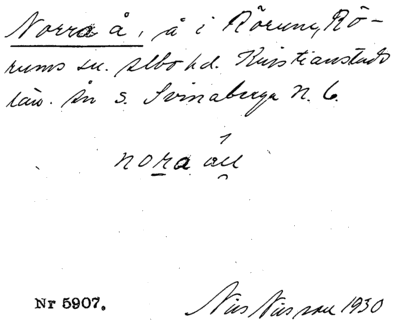 Norra å, å i Rörum, Rö-
rums sn. Albo hd. Kristianstads
län. ån s. Svinaberga N. 6.
nora åu
Nr 5907.
Nils Nilsson 1930